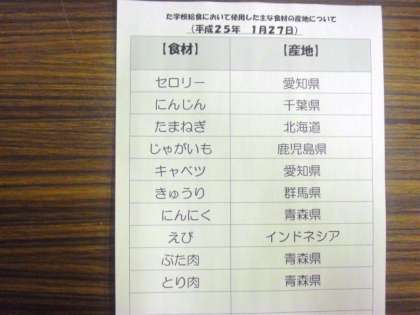 た学校給食において使用した主な食材の産地について
（平成25年　1月27日）
【食材】　【産地】
セロリー　愛知県
にんじん　千葉県
たまねぎ　北海道
じゃがいも　鹿児島県
キャベツ　愛知県
きゅうり　群馬県
にんにく　青森県
えび　インドネシア
ぶた肉　青森県
とり肉　青森県